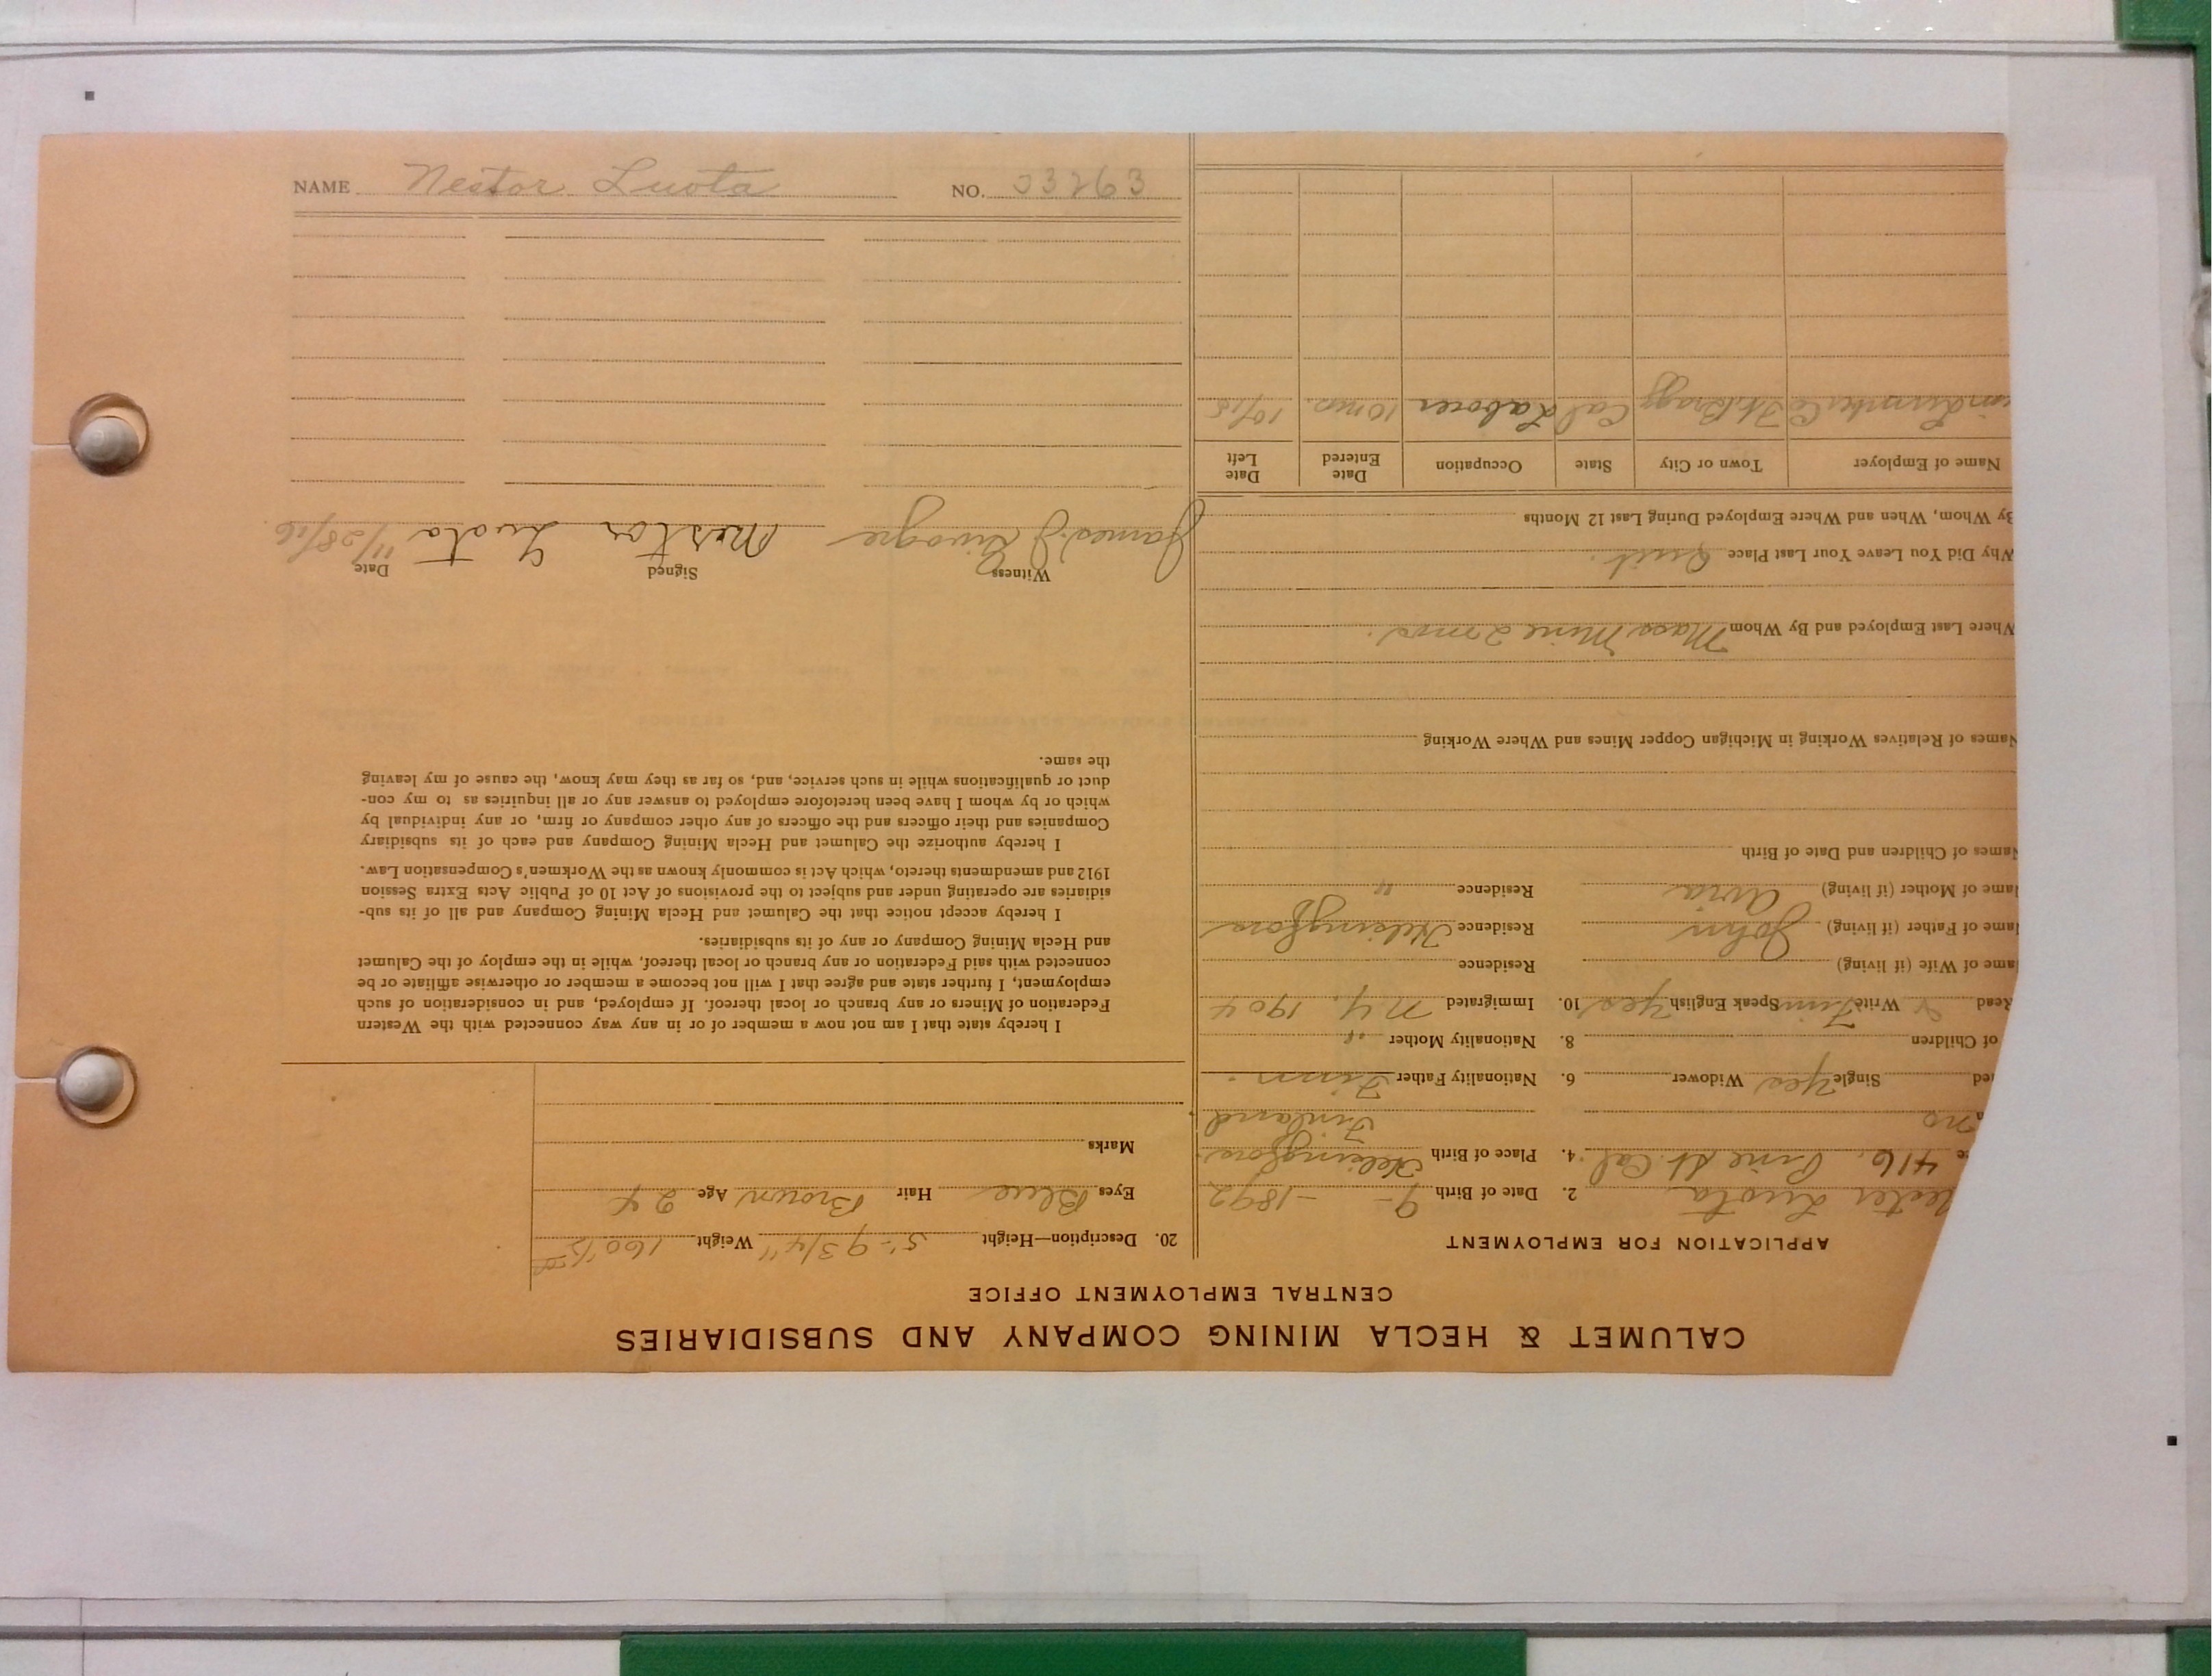 CALUMET & HECLA MINING COMPANY AND SUBSIDIARIES
CENTRAL EMPLOYMENT OFFICE
APPLICATION FOR EMPLOYMENT
Luota 2. Date of Birth 9- -1892
416, Pine St. Cal. 4. Place of Birth Helsingfors.
no Finland
Single Yes Widower 6. Nationality Father Finn.
of Children 8. Nationality Mother "
Read Write Finn Speak English Yes 10. Immigrated N.Y. 1904
ame of Wife (if living) Residence
ame of Father (if living) John Residence Helsingfors
ame of Mother (if living) Residence "
Names of Children and Date of Birth
Names of Relatives Working in Michigan Copper Mines and Where Working
Where Last Employed and By Whom Mass Mine 2 mos.
Why Did You Leave Your Last Place Quit.
By Whom, When and Where Employed During Last 12 Months
Name of Employer Town or City State Occupation Date Entered Date Left
Lumber Co Ft. Bragg Cal Laborer 10 mos. 10/15
20. Description—Height 5'- 9 3/4" Weight 160
Eyes Blue Hair Brown Age 24
Marks
I hereby state that I am not now a member of or in any way connected with the Western
Federation of Miners or any branch or local thereof. If employed, and in consideration of such
employment, I further state and agree that I will not become a member or otherwise affiliate or be
connected with said Federation or any branch or local thereof, while in the employ of the Calumet
and Hecla Mining Company or any of its subsidiaries.
I hereby accept notice that the Calumet and Hecla Mining Company and all of its sub-
sidiaries are operating under and subject to the provisions of Act 10 of Public Acts Extra Session
1912 and amendments thereto, which Act is commonly known as the Workmen's Compensation Law.
I hereby authorize the Calumet and Hecla Mining Company and each of its subsidiary
Companies and their officers and the officers of any other company or firm, or any individual by
which or by whom I have been heretofore employed to answer any or all inquiries as to my con-
duct or qualifications while in such service, and, so far as they may know, the cause of my leaving
the same.
Witness Signed Date
James J. Nestor Luota 11/28/16
NAME Nestor Luota NO. 33263